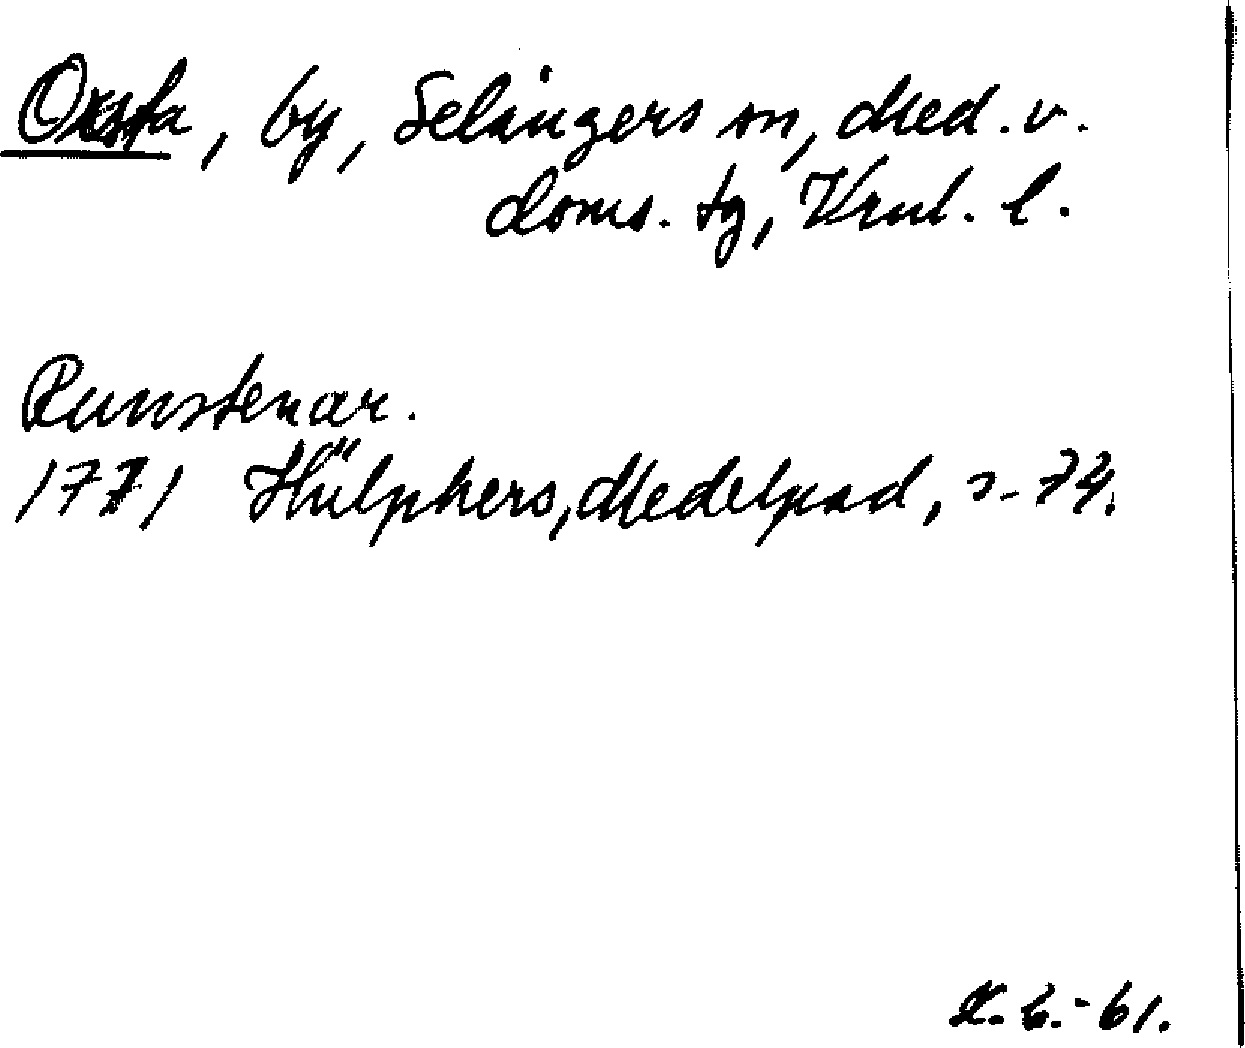 Oxsta, by, Selångers sn, Med. v.
doms. tg, Vrnl. l.
Runstenar.
1771 Hülphers, Medelpad, s. 74.
K. B. - 61.